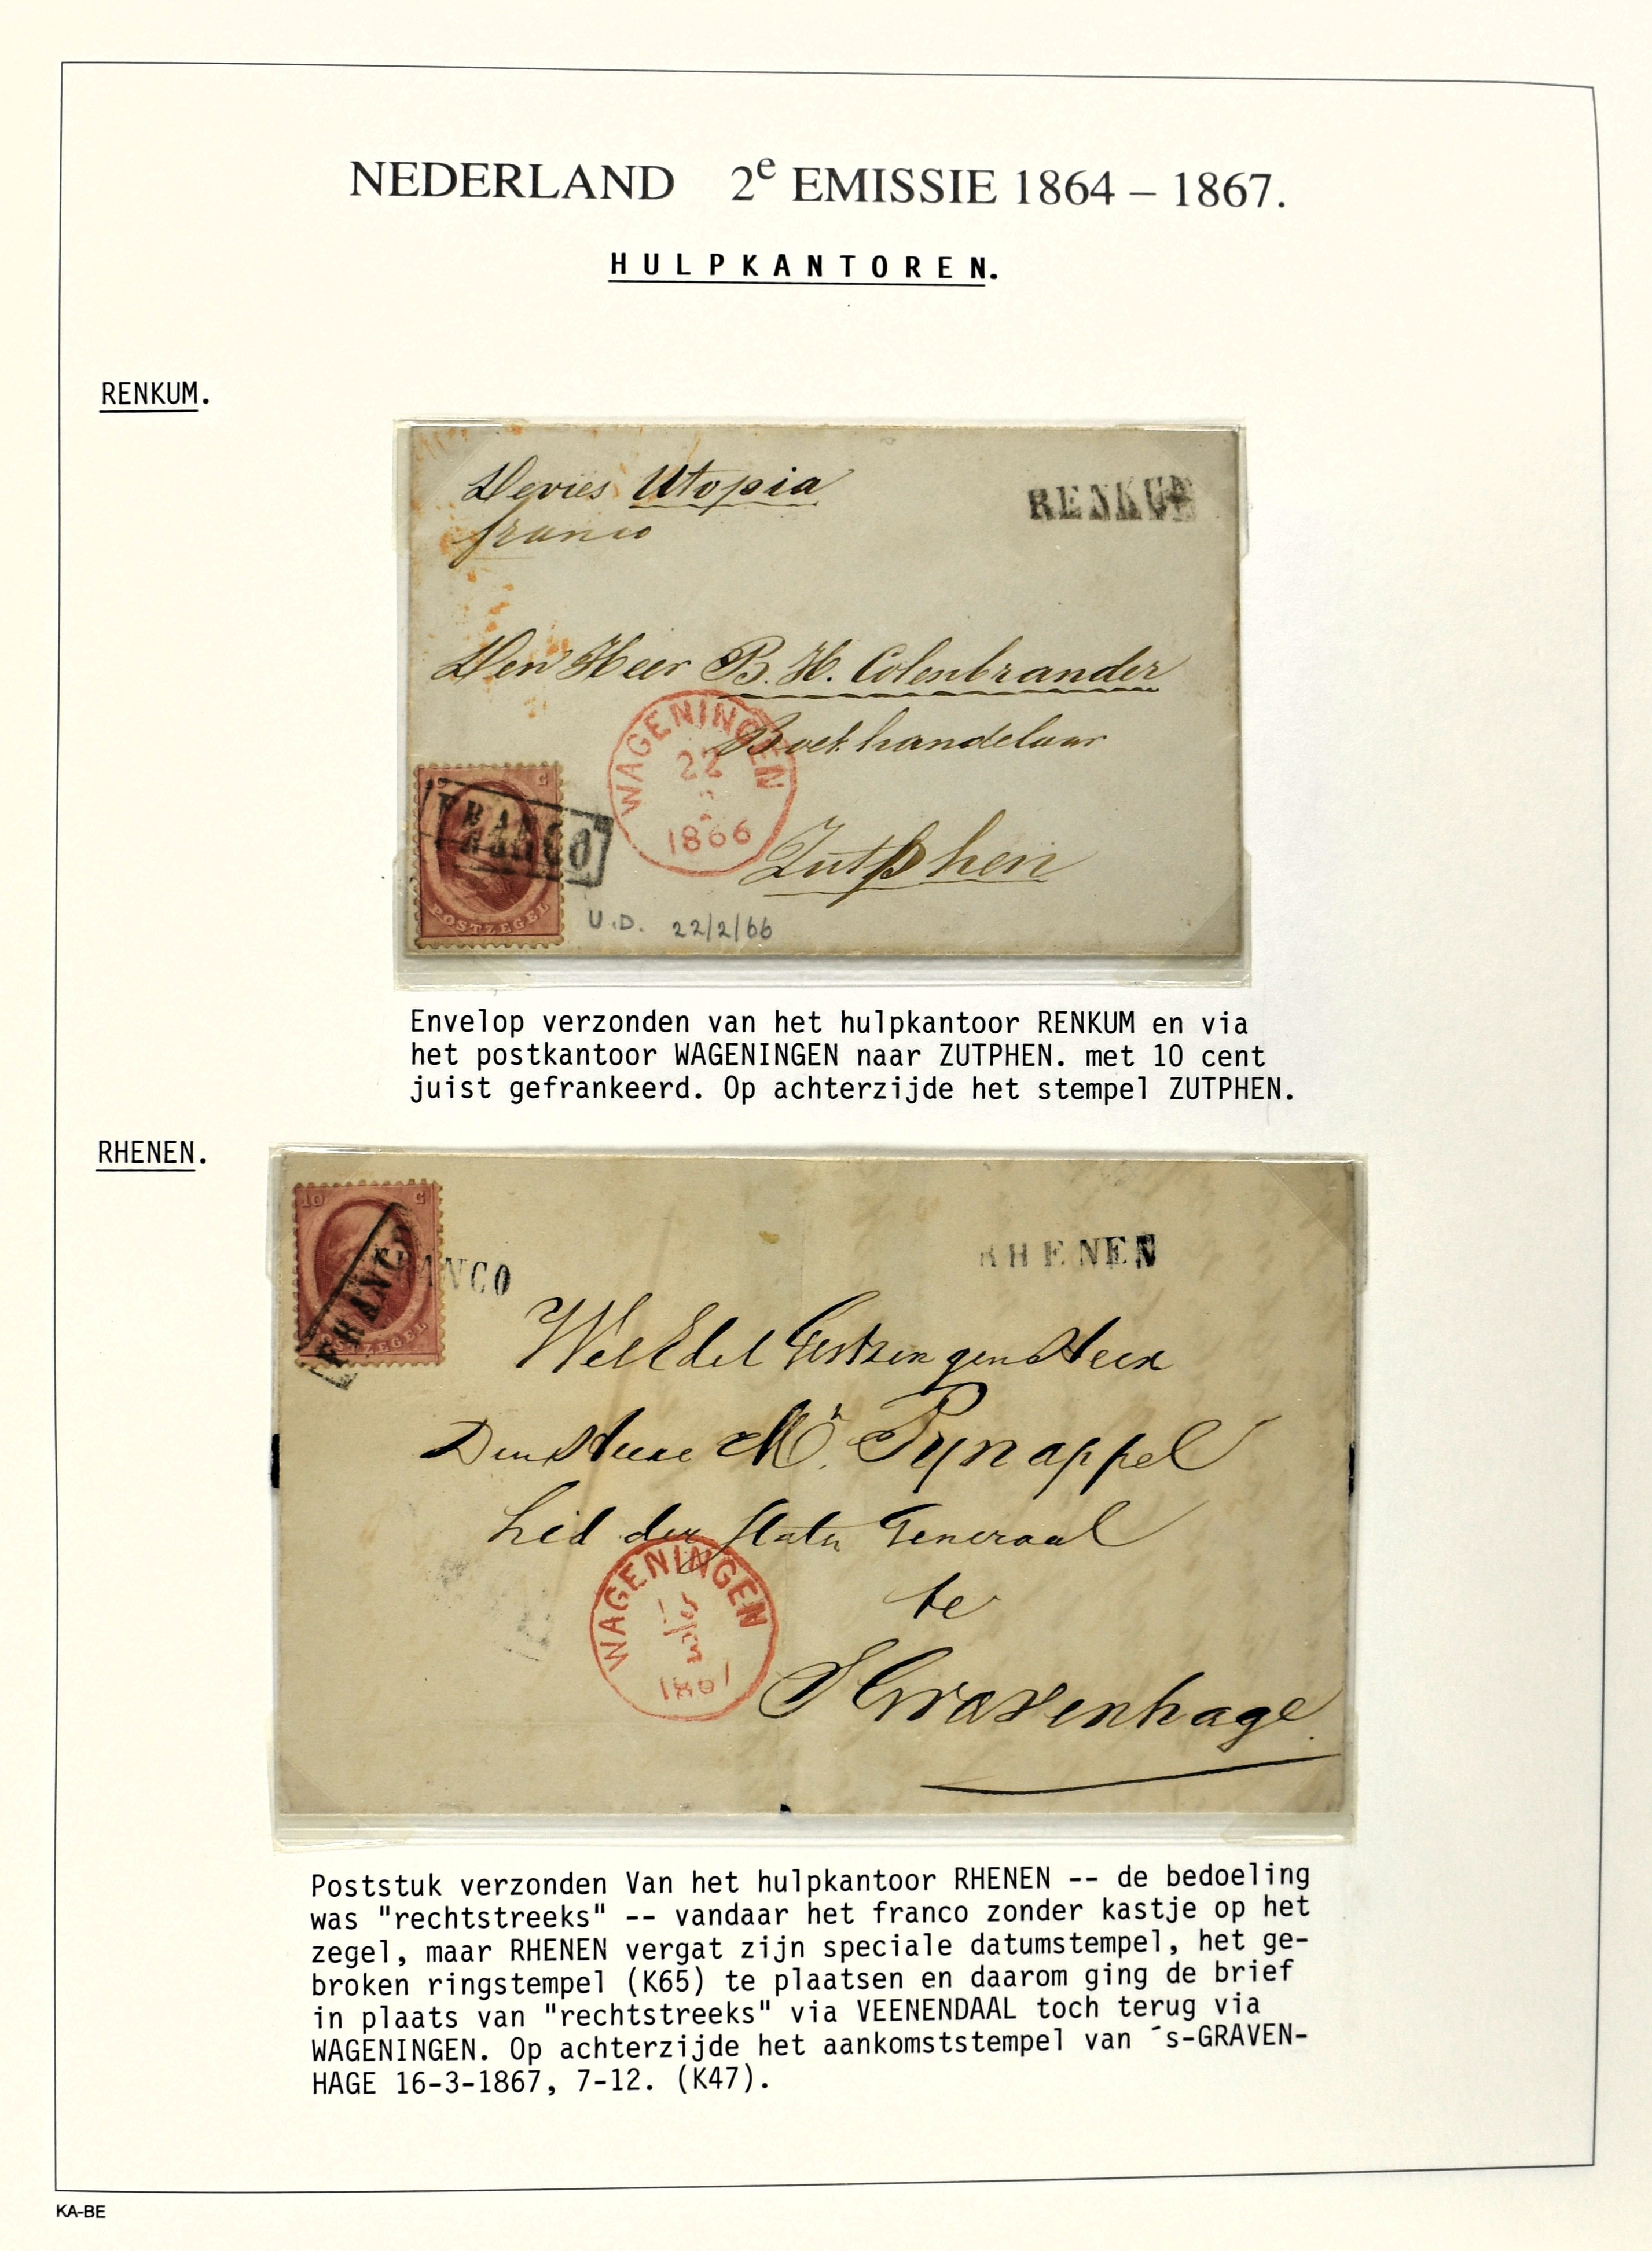 NEDERLAND 2e EMISSIE 1864 – 1867.
HULPKANTOREN.
RENKUM.
Devies Utopia
franco
RENKUM
Den Heer B. H. Colenbrander
Boekhandelaar
Zutphen
WAGENINGEN
22
2
1866
FRANCO
POSTZEGEL
U.D. 22/2/66
Envelop verzonden van het hulpkantoor RENKUM en via
het postkantoor WAGENINGEN naar ZUTPHEN. met 10 cent
juist gefrankeerd. Op achterzijde het stempel ZUTPHEN.
RHENEN.
10 C
FRANCO
FRANCO
POSTZEGEL
RHENEN
WelEdel Gestrengen Heer
Den Heere Mr. Pynappel
Lid der Staten Generaal
te
S Gravenhage
WAGENINGEN
1867
Poststuk verzonden Van het hulpkantoor RHENEN -- de bedoeling
was "rechtstreeks" -- vandaar het franco zonder kastje op het
zegel, maar RHENEN vergat zijn speciale datumstempel, het ge-
broken ringstempel (K65) te plaatsen en daarom ging de brief
in plaats van "rechtstreeks" via VEENENDAAL toch terug via
WAGENINGEN. Op achterzijde het aankomststempel van ´s-GRAVEN-
HAGE 16-3-1867, 7-12. (K47).
KA-BE